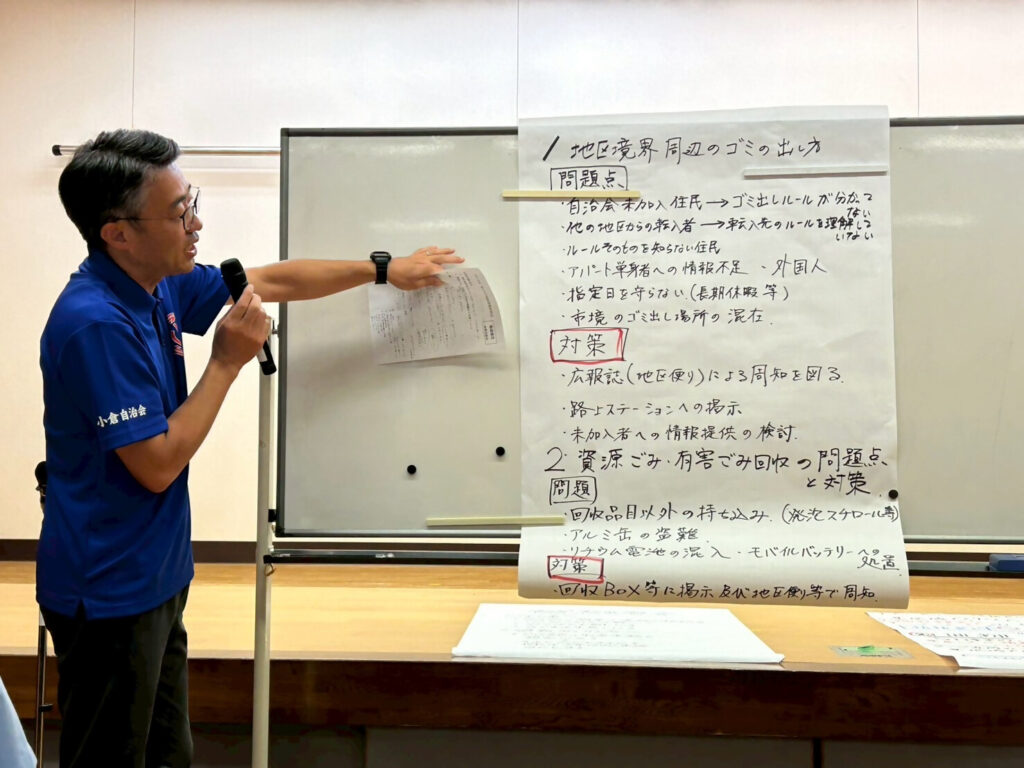 1 地区境界周辺のゴミの出し方
問題点
・自治会未加入住民→ゴミ出しルールが分かって
ない
・他の地区からの転入者→転入先のルールを理解して
いない
・ルールそのものを知らない住民
・アパート単身者への情報不足 ・外国人
・指定日を守らない。(長期休暇等)
・市境のゴミ出し場所の混在.
対策
・広報誌(地区便り)による周知を図る.
・路上ステーションへの掲示
・未加入者への情報提供の検討.
2 資源ごみ・有害ごみ回収の問題点
と対策
問題
・回収品目以外の持ち込み.(発泡スチロール等)
・アルミ缶の盗難.
・リチウム電池の混入 ・モバイルバッテリーへの
処置.
対策
・回収BOX等に掲示及び地区便り等で周知.
小倉自治会